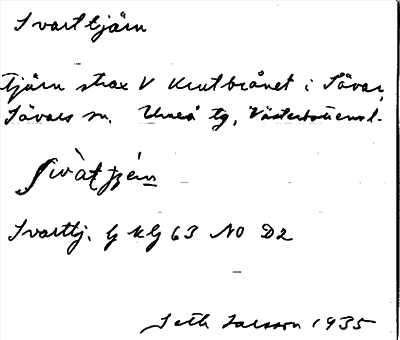 Svarttjärn
tjärn strax V Krutbrånet i Sävar,
Sävars sn. Umeå tg, Västerbottens l.
Svarttj. G KG 63 NO D2
Seth Larsson 1935